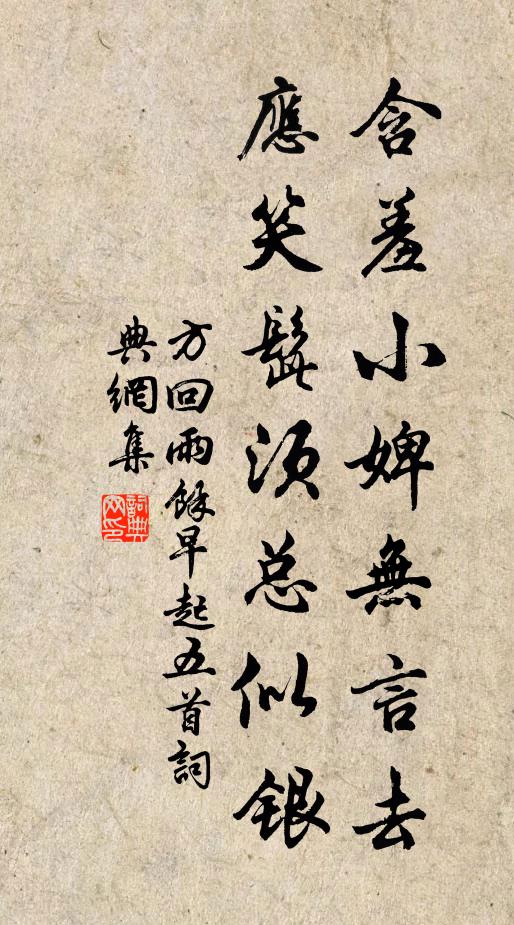 含羞小婢無言去
應笑髭須总似銀
方回雨餘早起五首詞
典網集
詞典网印